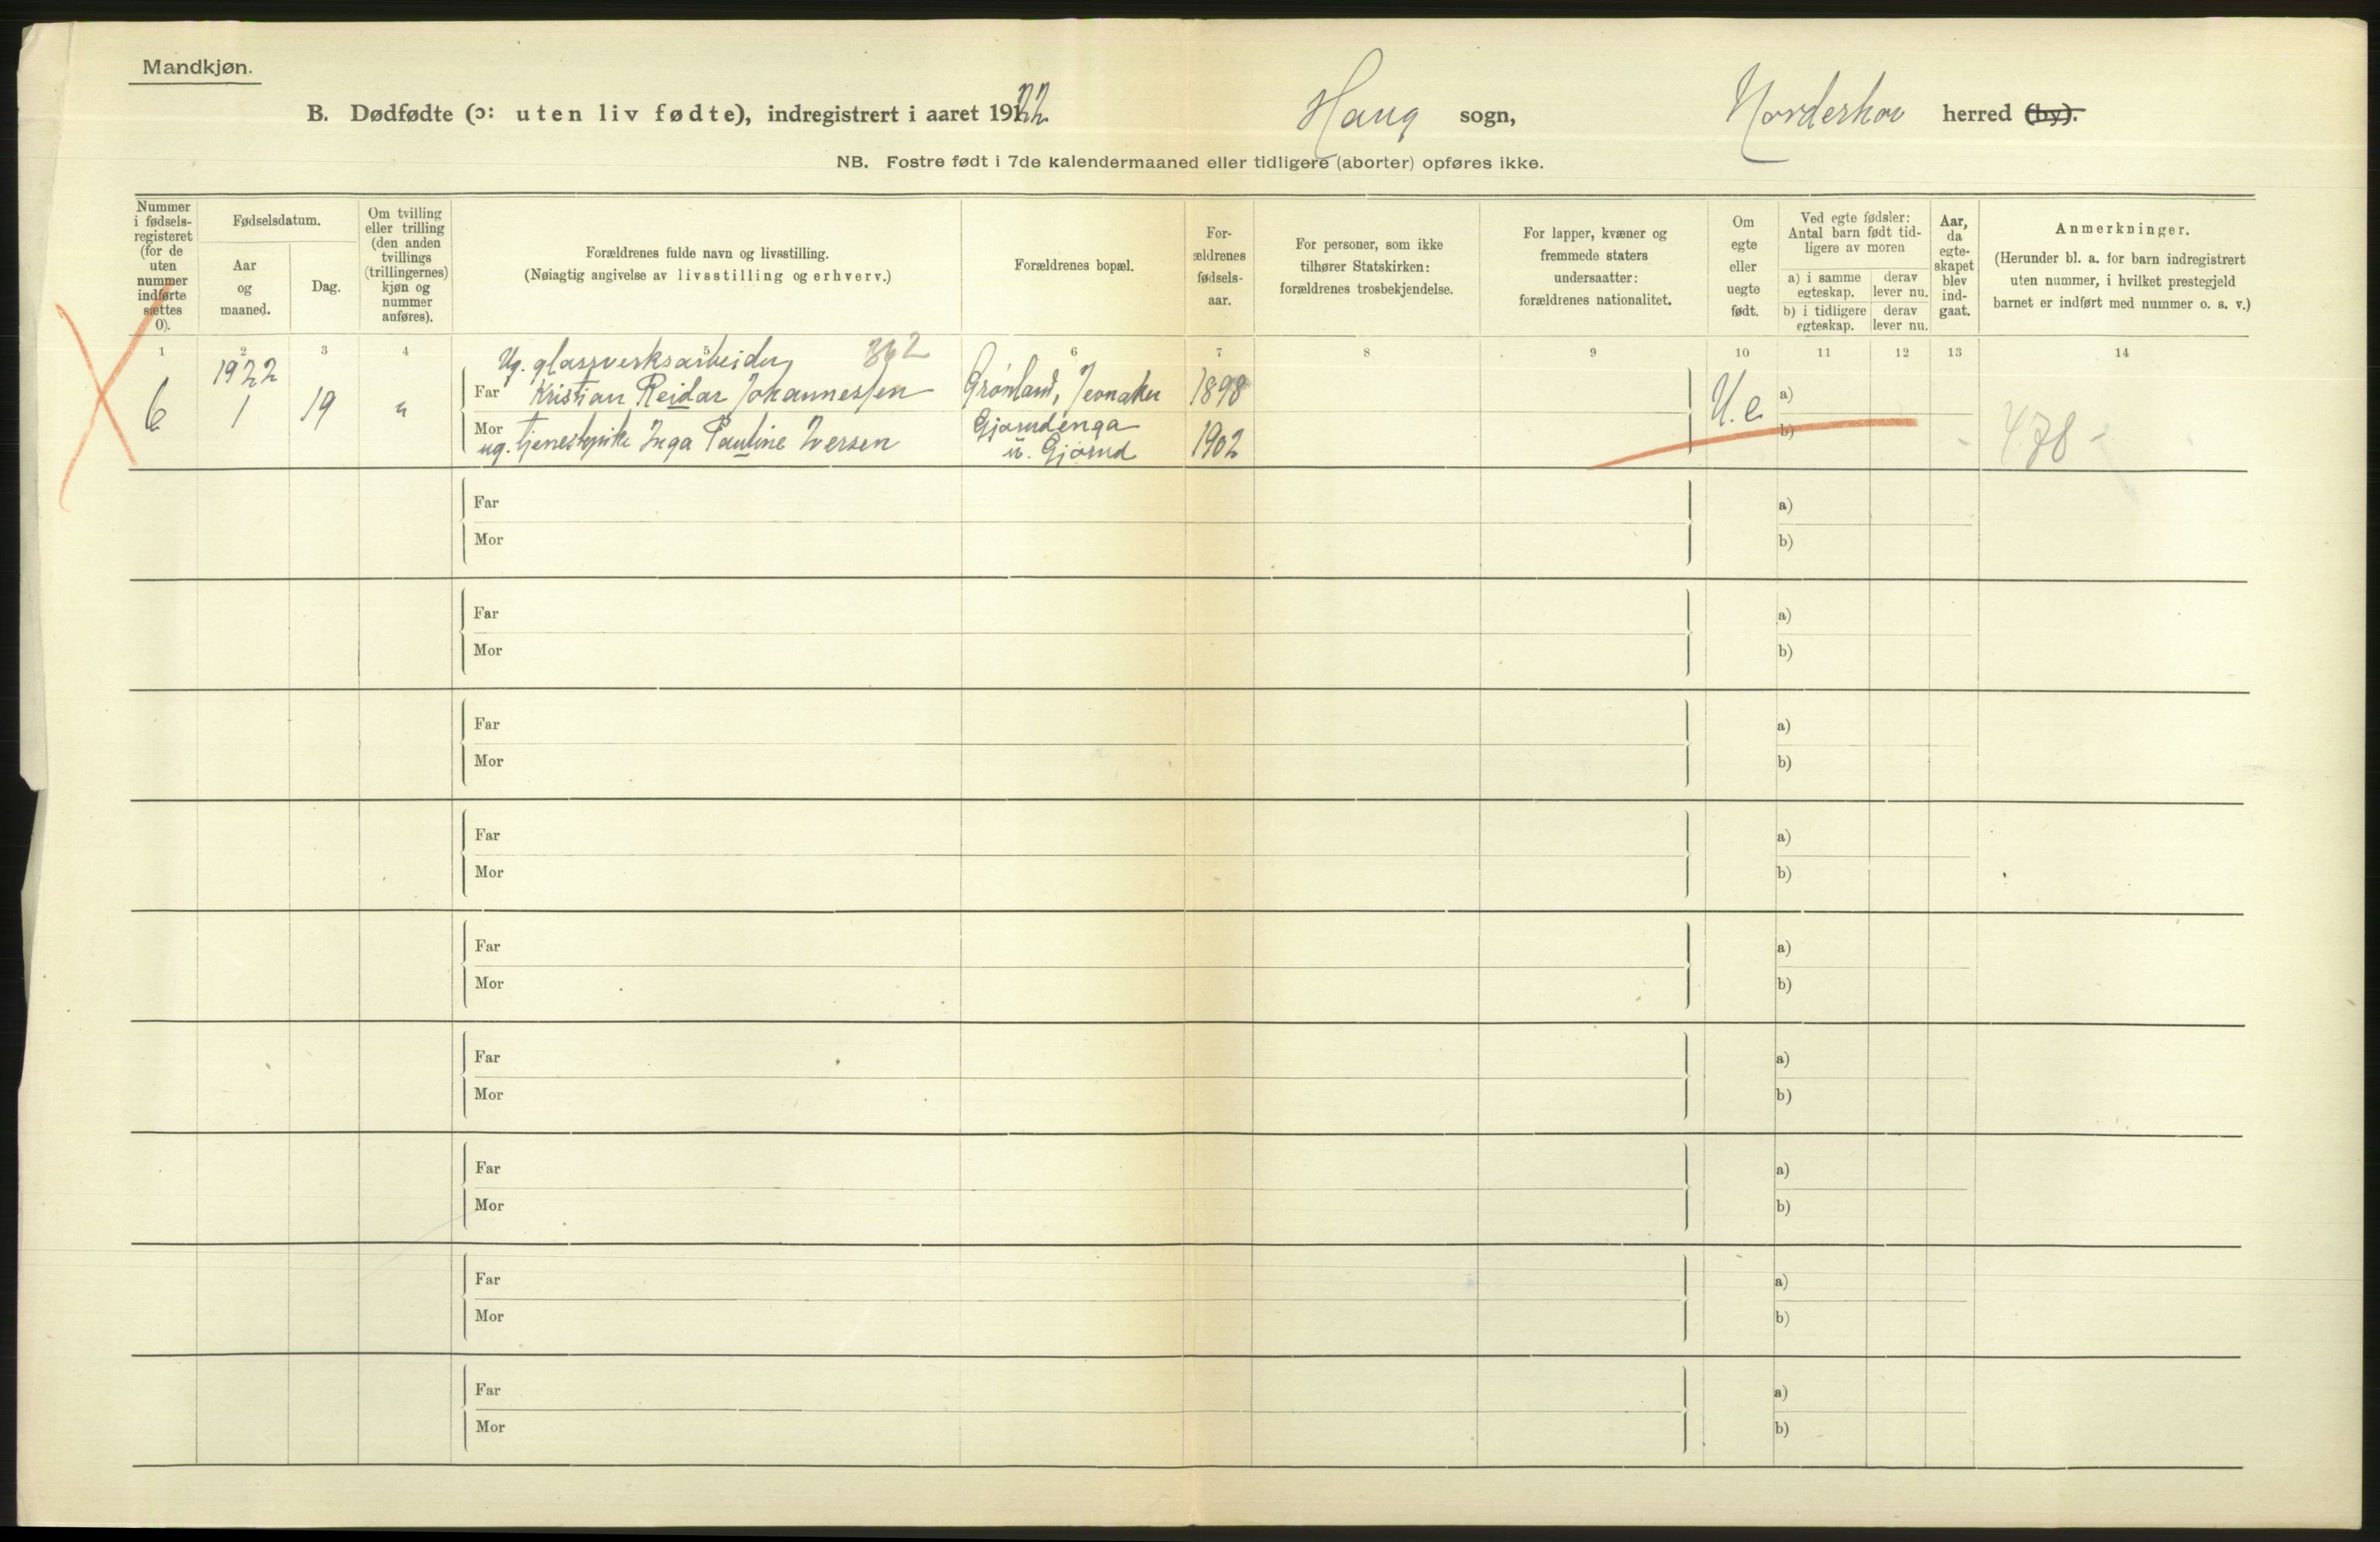 Mandkjøn.
B. Dødfødte (ɔ: uten liv fødte), indregistrert i aaret 1922 Haug sogn, Norderhov herred (by).
NB. Fostre født i 7de kalendermaaned eller tidligere (aborter) opføres ikke.
Nummer i fødselsregisteret (for de uten nummer indførte sættes 0).
Fødselsdatum.
Aar og maaned.
Dag.
Om tvilling eller trilling (den anden tvillings (trillingernes) kjøn og nummer anføres).
Forældrenes fulde navn og livsstilling.
(Nøiagtig angivelse av livsstilling og erhverv.)
Forældrenes bopæl.
Forældrenes fødselsaar.
For personer, som ikke tilhører Statskirken: forældrenes trosbekjendelse.
For lapper, kvæner og fremmede staters undersaatter: forældrenes nationalitet.
Om egte eller uegte født.
Ved egte fødsler: Antal barn født tidligere av moren
a) i samme egteskap. derav lever nu.
b) i tidligere egteskap. derav lever nu.
Aar, da egteskapet blev indgaat.
Anmerkninger.
(Herunder bl. a. for barn indregistrert uten nummer, i hvilket prestegjeld barnet er indført med nummer o. s. v.)
1 2 3 4 5 6 7 8 9 10 11 12 13 14
1922 Ug. glassverksarbeider 362
6 1 19 " Far Kristian Reidar Johannessen Grønland, Jevnaker 1898 U.e a)
Mor ug. tjenestepike Inga Pauline Iversen Gjørudenga u. Gjørud 1902 b) - 478 -
Far a)
Mor b)
Far a)
Mor b)
Far a)
Mor b)
Far a)
Mor b)
Far a)
Mor b)
Far a)
Mor b)
Far a)
Mor b)
Far a)
Mor b)
Far a)
Mor b)